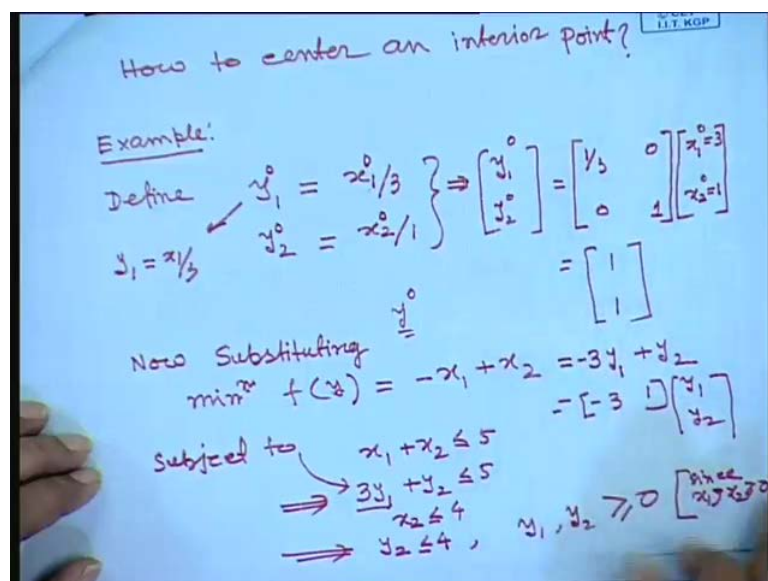 I.I.T. KGP
How to center an interior point?
Example:
Define y₁⁰ = x₁⁰/3 } ⇒ [y₁⁰ y₂⁰] = [1/3 0 0 1] [x₁⁰=3 x₂⁰=1]
y₁ = x₁/3 y₂⁰ = x₂⁰/1
= [1 1]
y⁰
Now Substituting
minᵐ f(y) = -x₁ + x₂ = -3y₁ + y₂
= [-3 1] [y₁ y₂]
Subject to, x₁ + x₂ ≤ 5
⇒ 3y₁ + y₂ ≤ 5
x₂ ≤ 4
⇒ y₂ ≤ 4, y₁, y₂ ≥ 0 [since x₁, x₂ ≥ 0